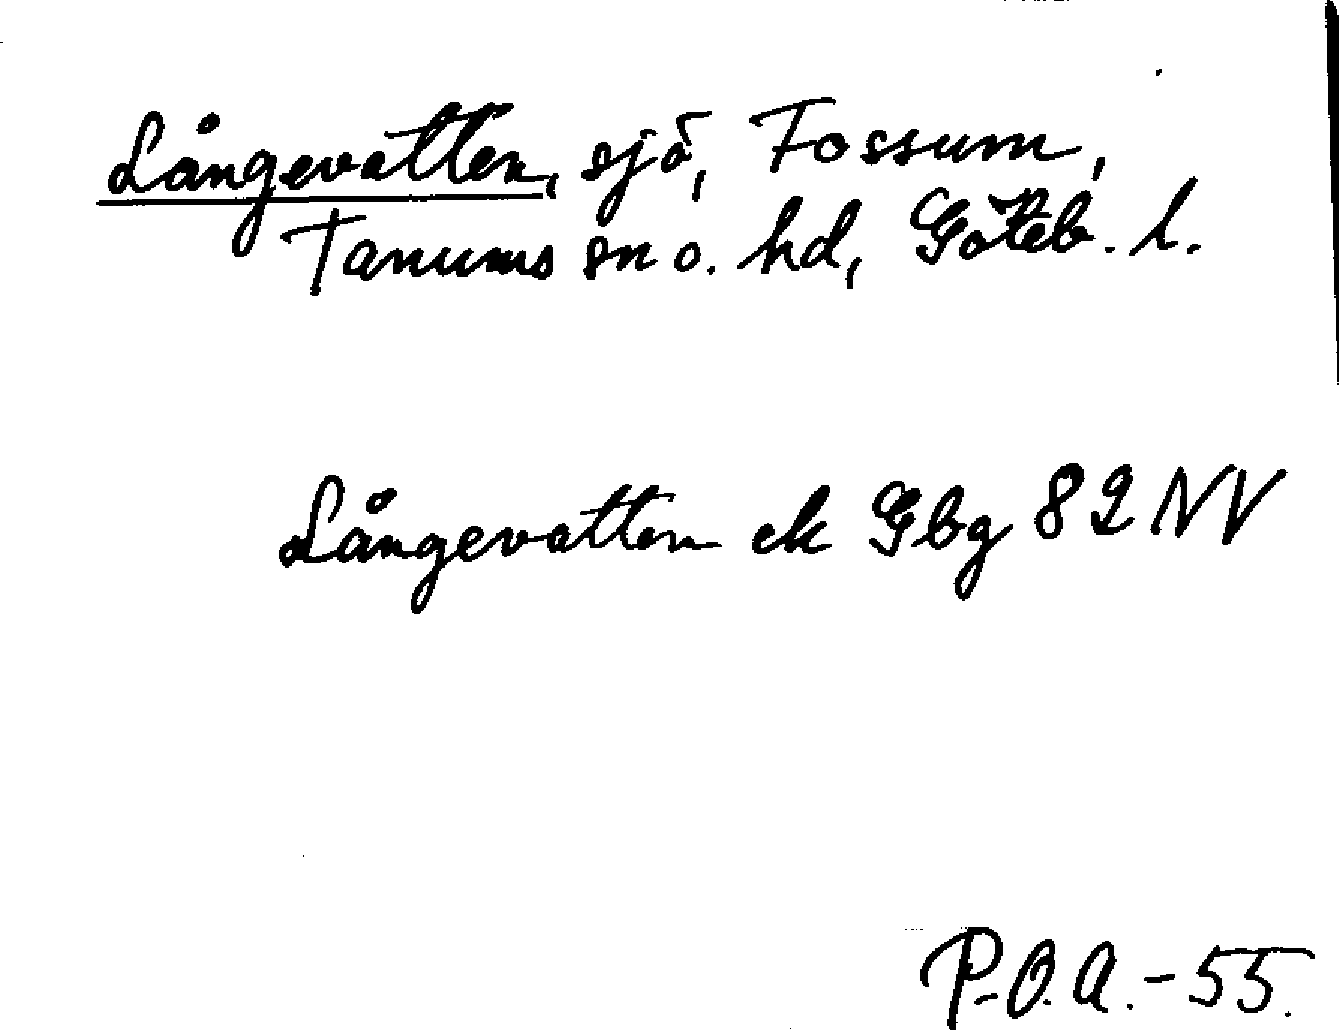 Långevatten, sjö, Fossum,
Tanums sn o. hd, Göteb. l.
Långevatten ek Gbg 82 NV
P.O.A.-55.